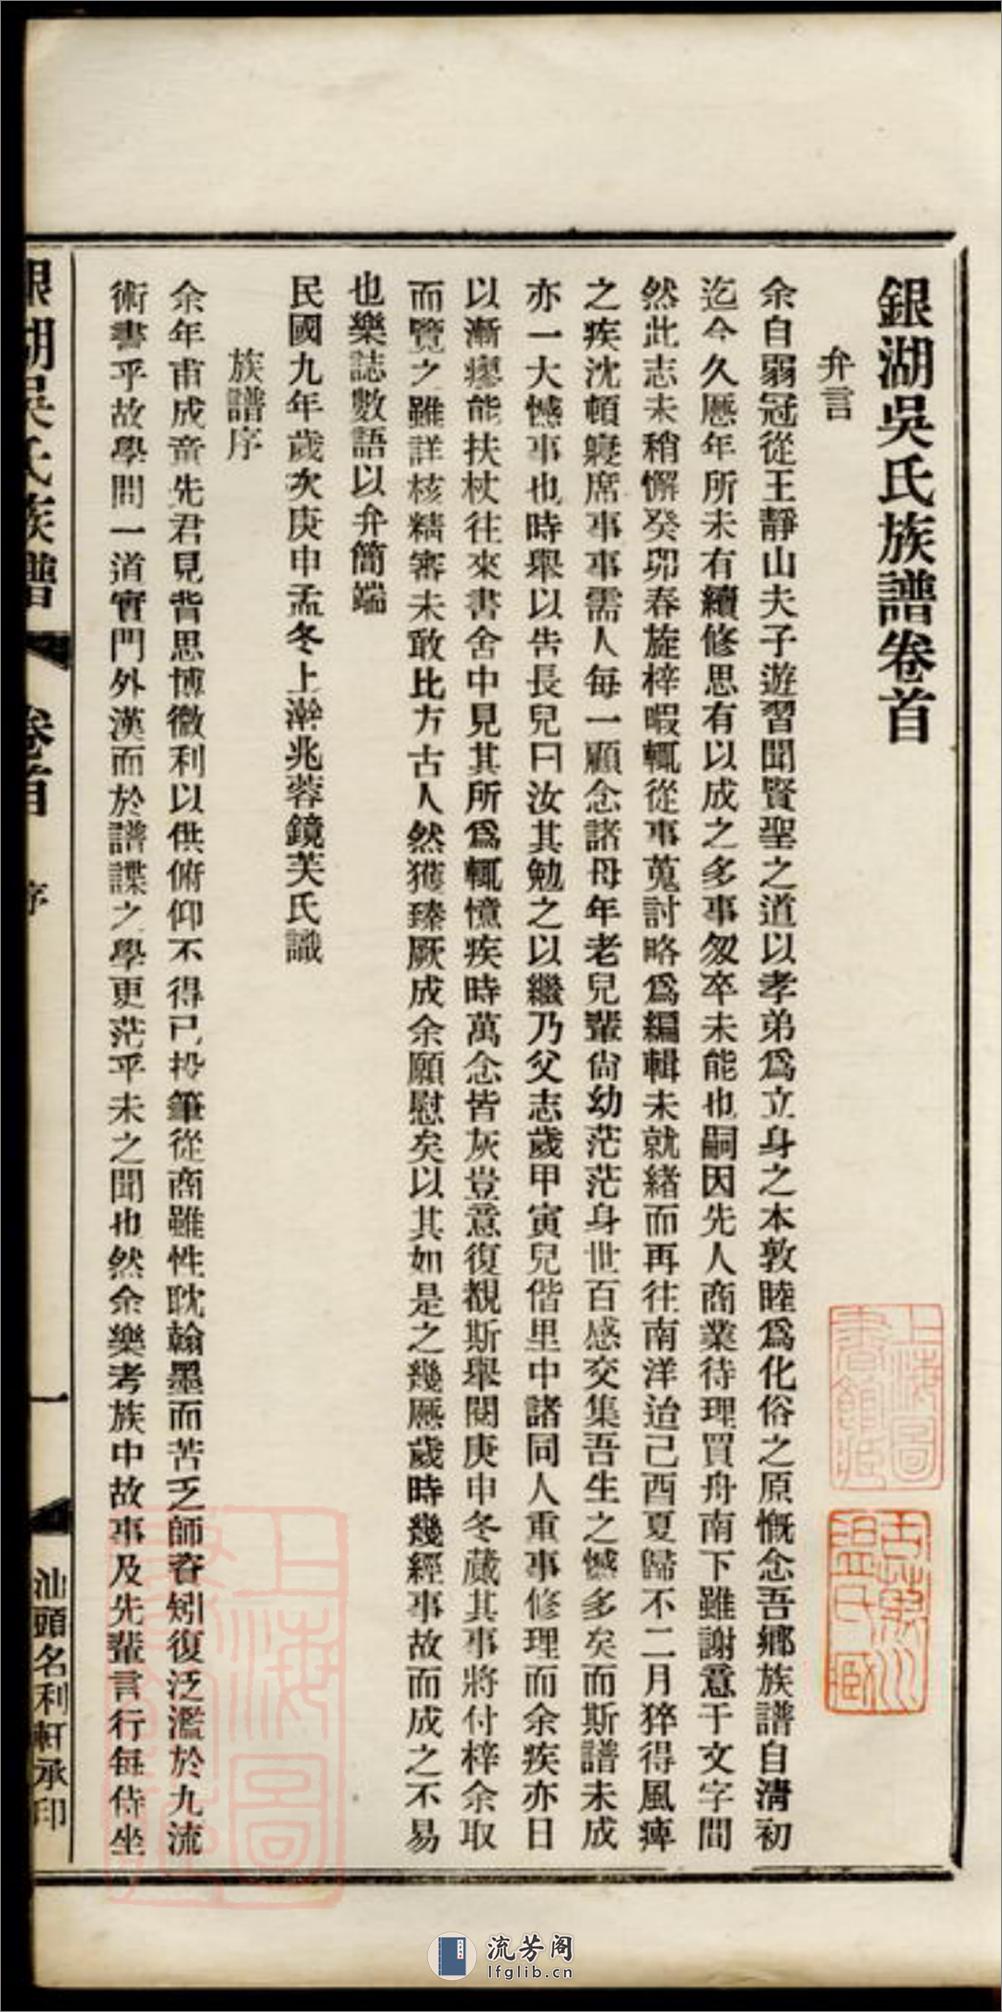 銀湖吳氏族譜卷首
弁言
余自弱冠從王靜山夫子遊習聞賢聖之道以孝弟爲立身之本敦睦爲化俗之原慨念吾鄉族譜自清初
迄今久厯年所未有續修思有以成之多事匆卒未能也嗣因先人商業待理買舟南下雖謝意于文字間
然此志未稍懈癸卯春旋梓暇輒從事蒐討略爲編輯未就緒而再往南洋迨己酉夏歸不二月猝得風痺
之疾沈頓寢席事事需人每一顧念諸母年老兒輩尙幼茫茫身世百感交集吾生之憾多矣而斯譜未成
亦一大憾事也時舉以告長兒曰汝其勉之以繼乃父志歲甲寅兒偕里中諸同人重事修理而余疾亦日
以漸瘳能扶杖往來書舍中見其所爲輒憶疾時萬念皆灰豈意復覩斯舉閱庚申冬蕆其事將付梓余取
而覽之雖詳核精審未敢比方古人然獲臻厥成余願慰矣以其如是之幾厯歲時幾經事故而成之不易
也樂誌數語以弁簡端
民國九年歲次庚申孟冬上澣兆蓉鏡芙氏識
族譜序
余年甫成童先君見背思博微利以供俯仰不得已投筆從商雖性耽翰墨而苦乏師資矧復泛濫於九流
術書乎故學問一道實門外漢而於譜諜之學更茫乎未之聞也然余樂考族中故事及先輩言行每侍坐
銀湖吳氏族譜
卷首
序
一
汕頭名利軒承印
上海圖書館藏
上海圖書館藏
流芳阁
lfglib.cn